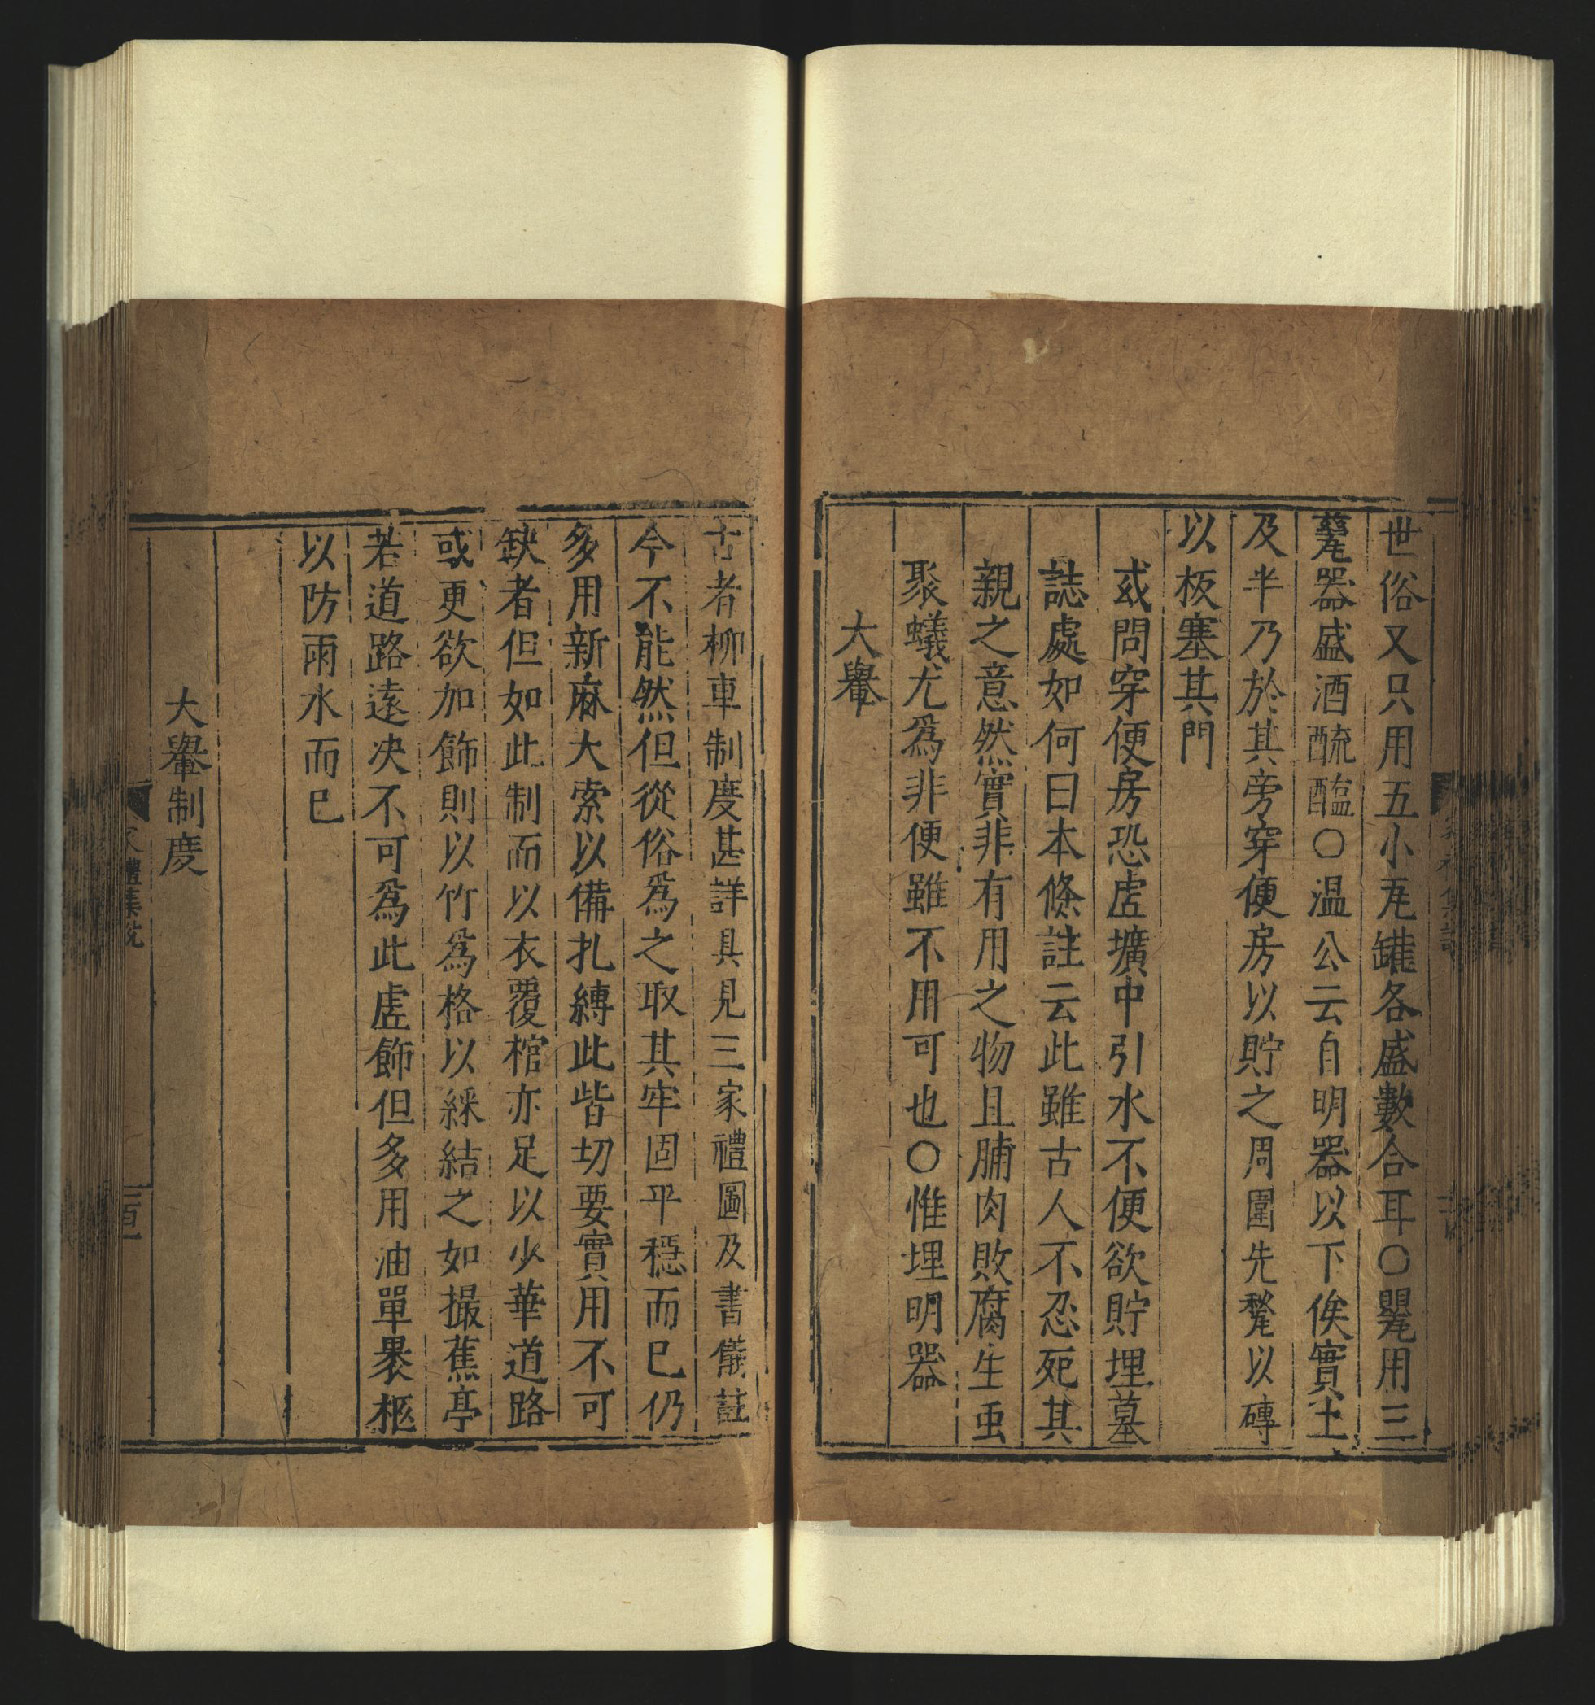 世俗又只用五小瓦罐各盛數合耳○甖用三
甕器盛酒醯醢○温公云自明器以下俟實土
及半乃於其旁穿便房以貯之周圍先甃以磚
以板塞其門
或問穿便房恐虚壙中引水不便欲貯埋墓
誌處如何曰本條註云此雖古人不忍死其
親之意然實非有用之物且脯肉敗腐生䖝
聚蟻尤爲非便雖不用可也○惟埋明器
大轝
古者柳車制度甚詳具見三家禮圖及書儀註
今不能然但從俗爲之取其牢固平穩而已仍
多用新麻大索以備扎縳此皆切要實用不可
缺者但如此制而以衣覆棺亦足以少華道路
或更欲加飾則以竹爲格以綵結之如撮蕉亭
若道路遠决不可爲此虚飾但多用油單裹柩
以防雨水而已
大轝制度
家禮集說